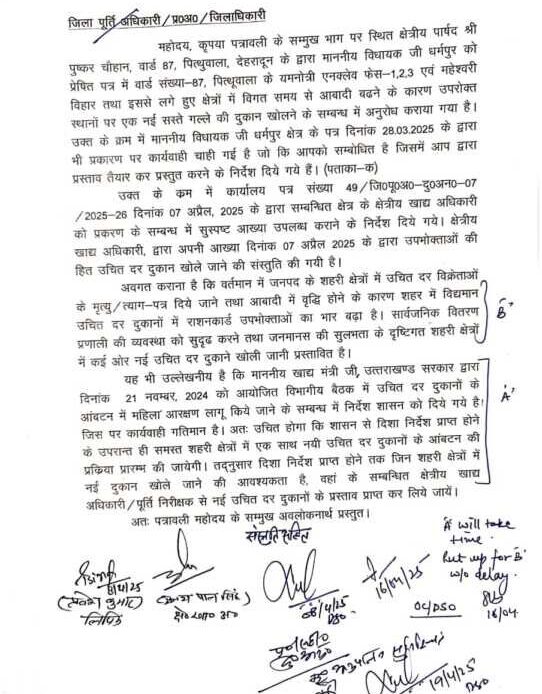 जिला पूर्ति अधिकारी/प्र०अ०/जिलाधिकारी
महोदय, कृपया पत्रावली के सम्मुख भाग पर स्थित क्षेत्रीय पार्षद श्री
पुष्कर चौहान, वार्ड 87, पित्थुवाला, देहरादून के द्वारा माननीय विधायक जी धर्मपुर को
प्रेषित पत्र में वार्ड संख्या-87, पित्थूवाला के यमनोत्री एनक्लेव फेस-1,2,3 एवं महेश्वरी
विहार तथा इससे लगे हुए क्षेत्रों में विगत समय से आबादी बढने के कारण उपरोक्त
स्थानों पर एक नई सस्ते गल्ले की दुकान खोलने के सम्बन्ध में अनुरोध कराया गया है।
उक्त के क्रम में माननीय विधायक जी धर्मपुर क्षेत्र के पत्र दिनांक 28.03.2025 के द्वारा
भी प्रकारण पर कार्यवाही चाही गई है जो कि आपको सम्बोधित है जिसमें आप द्वारा
प्रस्ताव तैयार कर प्रस्तुत करने के निर्देश दिये गये हैं। (पताका-क)
उक्त के क्रम में कार्यालय पत्र संख्या 49/जि०पू०अ०-दु०अन०-07
/2025-26 दिनांक 07 अप्रैल, 2025 के द्वारा सम्बन्धित क्षेत्र के क्षेत्रीय खाद्य अधिकारी
को प्रकरण के सम्बन्ध में सुस्पष्ट आख्या उपलब्ध कराने के निर्देश दिये गये। क्षेत्रीय
खाद्य अधिकारी, द्वारा अपनी आख्या दिनांक 07 अप्रैल 2025 के द्वारा उपभोक्ताओं की
हित उचित दर दुकान खोले जाने की संस्तुति की गयी है।
अवगत कराना है कि वर्तमान में जनपद के शहरी क्षेत्रों में उचित दर विक्रेताओं
के मृत्यु/त्याग-पत्र दिये जाने तथा आबादी में वृद्धि होने के कारण शहर में विद्यमान
उचित दर दुकानों में राशनकार्ड उपभोक्ताओं का भार बढ़ा है। सार्वजनिक वितरण
प्रणाली की व्यवस्था को सुदृढ करने तथा जनमानस की सुलभता के दृष्टिगत शहरी क्षेत्रों
में कई ओर नई उचित दर दुकाने खोली जानी प्रस्तावित है।
'B'
यह भी उल्लेखनीय है कि माननीय खाद्य मंत्री जी, उत्तराखण्ड सरकार द्वारा
दिनांक 21 नवम्बर, 2024 को आयोजित विभागीय बैठक में उचित दर दुकानों के
आंवटन में महिला आरक्षण लागू किये जाने के सम्बन्ध में निर्देश शासन को दिये गये है।
जिस पर कार्यवाही गतिमान है। अतः उचित होगा कि शासन से दिशा निर्देश प्राप्त होने
के उपरान्त ही समस्त शहरी क्षेत्रों में एक साथ नयी उचित दर दुकानों के आंबटन की
प्रक्रिया प्रारम्भ की जायेगी। तद्नुसार दिशा निर्देश प्राप्त होने तक जिन शहरी क्षेत्रों में
नई दुकान खोले जाने की आवश्यकता है, वहां के सम्बन्धित क्षेत्रीय खाद्य
अधिकारी/पूर्ति निरीक्षक से नई उचित दर दुकानों के प्रस्ताव प्राप्त कर लिये जायें।
'A'
अतः पत्रावली महोदय के सम्मुख अवलोकनार्थ प्रस्तुत।
संस्तुति सहित
'A' will take
time.
Put up for 'B'
w/o delay.
16/04
OC/DSO
16/04/25
08/4/25
DSO
लिपिक
19/4/25
DSO